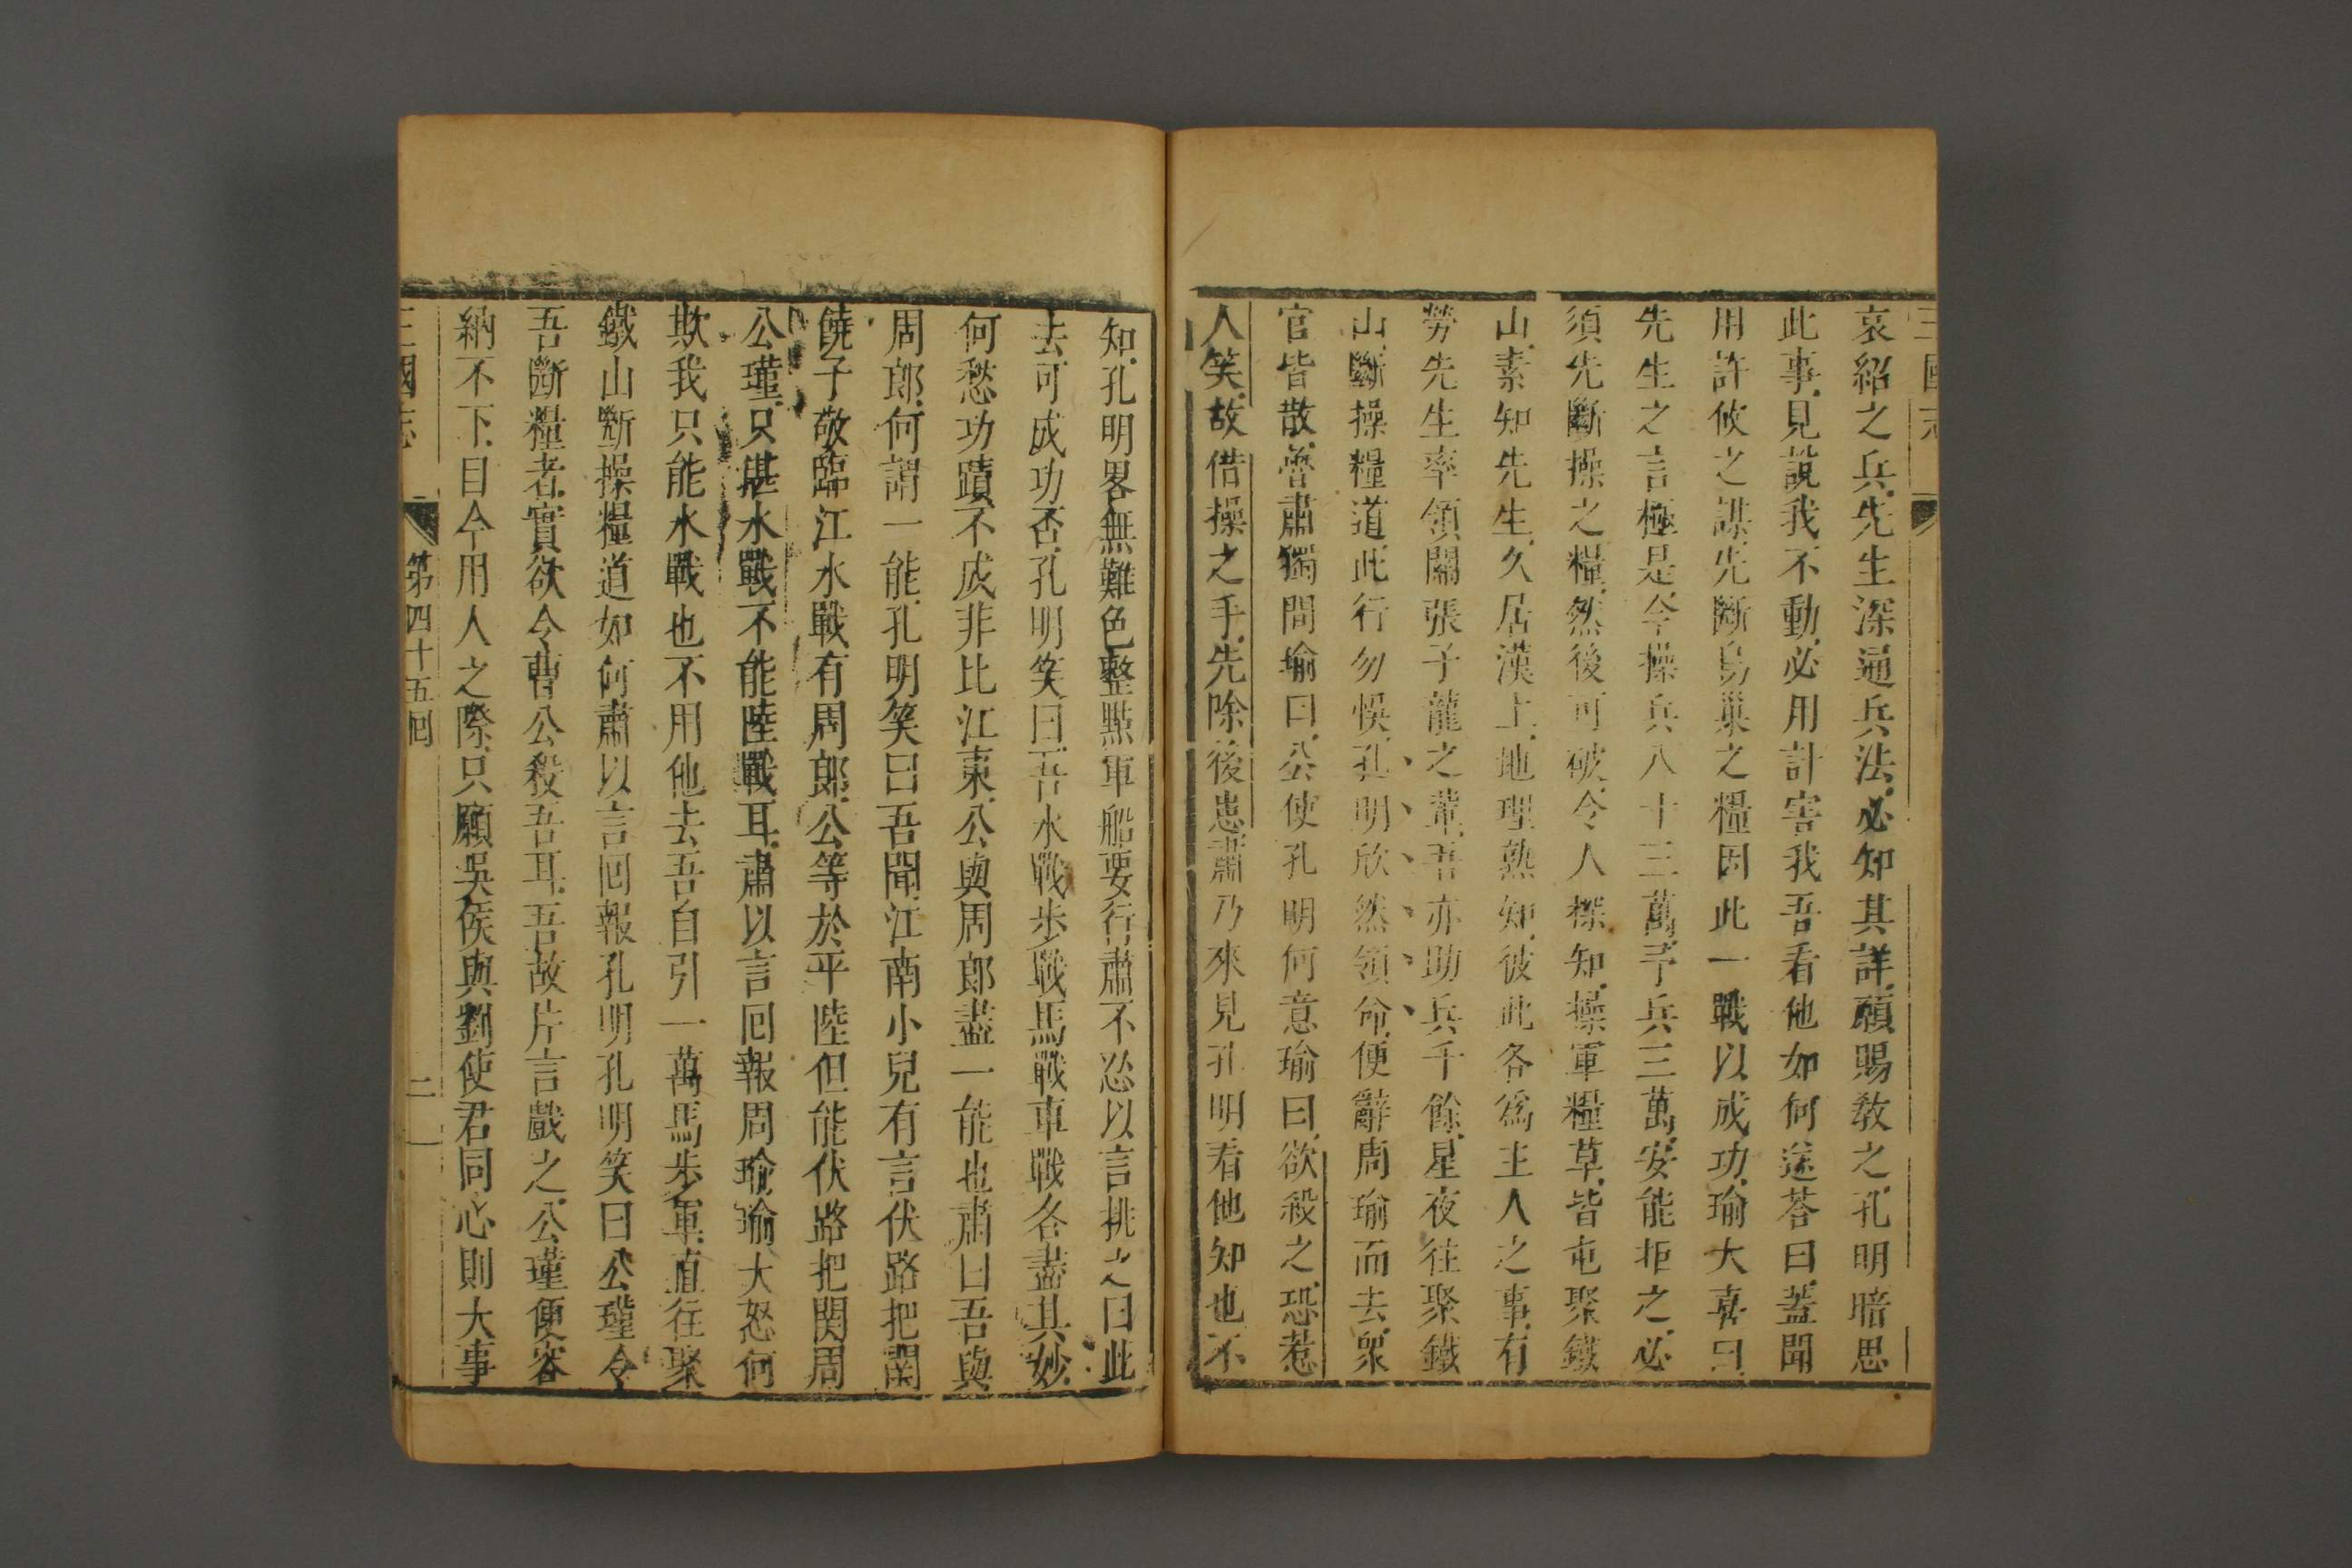 三國志
袁紹之兵先生深通兵法必知其詳願賜敎之孔明暗思
此事見說我不動必用計害我吾看他如何遂荅曰蓋聞
用許攸之謀先斷烏巢之糧因此一戰以成功瑜大喜曰
先生之言極是今操兵八十三萬予兵三萬安能拒之必
須先斷操之糧然後可破令人探知操軍糧草皆屯聚鐵
山素知先生久居漢上地理熟知彼此各爲主人之事有
勞先生率領關張子龍之輩吾亦助兵千餘星夜往聚鐵
山斷操糧道此行勿悞孔明欣然領命便辭周瑜而去衆
官皆散魯肅獨問瑜曰公使孔明何意瑜曰欲殺之恐惹
人笑故借操之手先除後患肅乃來見孔明看他知也不
知孔明畧無難色整㸃軍船要行肅不忍以言挑之曰此
去可成功否孔明笑曰吾水戰步戰馬戰車戰各盡其妙
何愁功蹟不成非比江東公與周郎盡一能也肅曰吾與
周郎何謂一能孔明笑曰吾聞江南小兒有言伏路把関
饒子敬臨江水戰有周郎公等於平陸但能伏路把関周
公瑾只堪水戰不能陸戰耳肅以言囘報周瑜瑜大怒何
欺我只能水戰也不用他去吾自引一萬馬步軍直往聚
鐵山斷操糧道如何肅以言囘報孔明孔明笑曰公瑾令
吾斷糧者實欲令曹公殺吾耳吾故片言戲之公瑾便容
納不下目今用人之際只願吳侯與劉使君同心則大事
三國志 第四十五囘 二